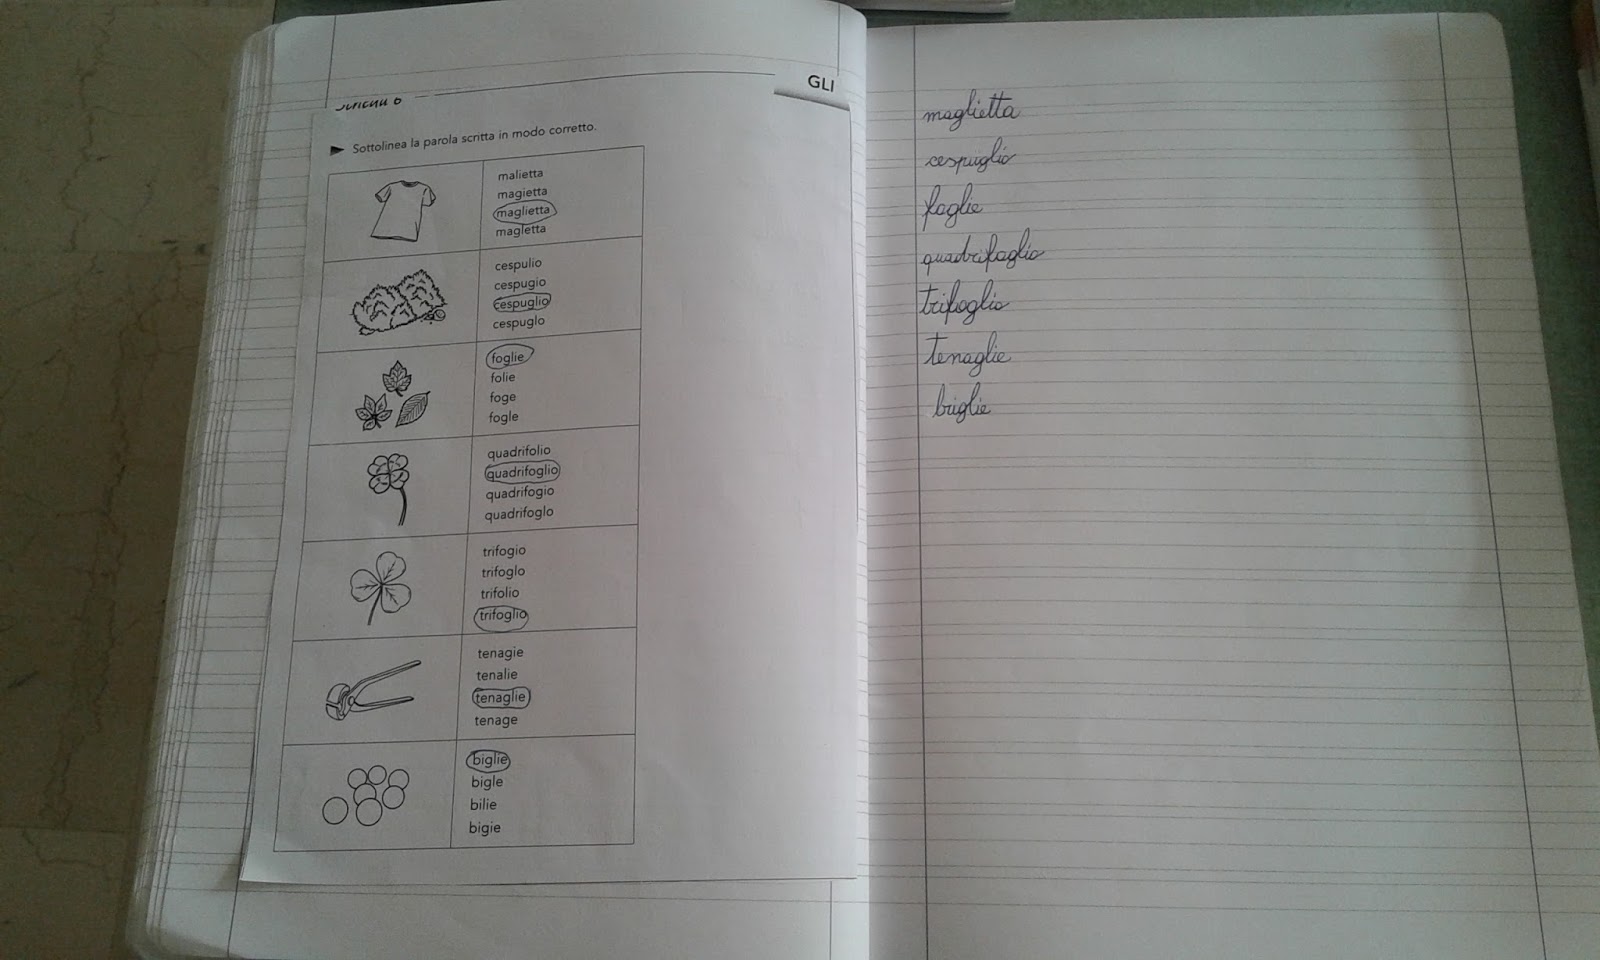 GLI
Sottolinea la parola scritta in modo corretto.
malietta
magietta
maglietta
magletta
cespulio
cespugio
cespuglio
cespuglo
foglie
folie
foge
fogle
quadrifolio
quadrifoglio
quadrifogio
quadrifoglo
trifogio
trifoglo
trifolio
trifoglio
tenagie
tenalie
tenaglie
tenage
biglie
bigle
bilie
bigie
maglietta
cespuglio
foglie
quadrifoglio
trifoglio
tenaglie
briglie